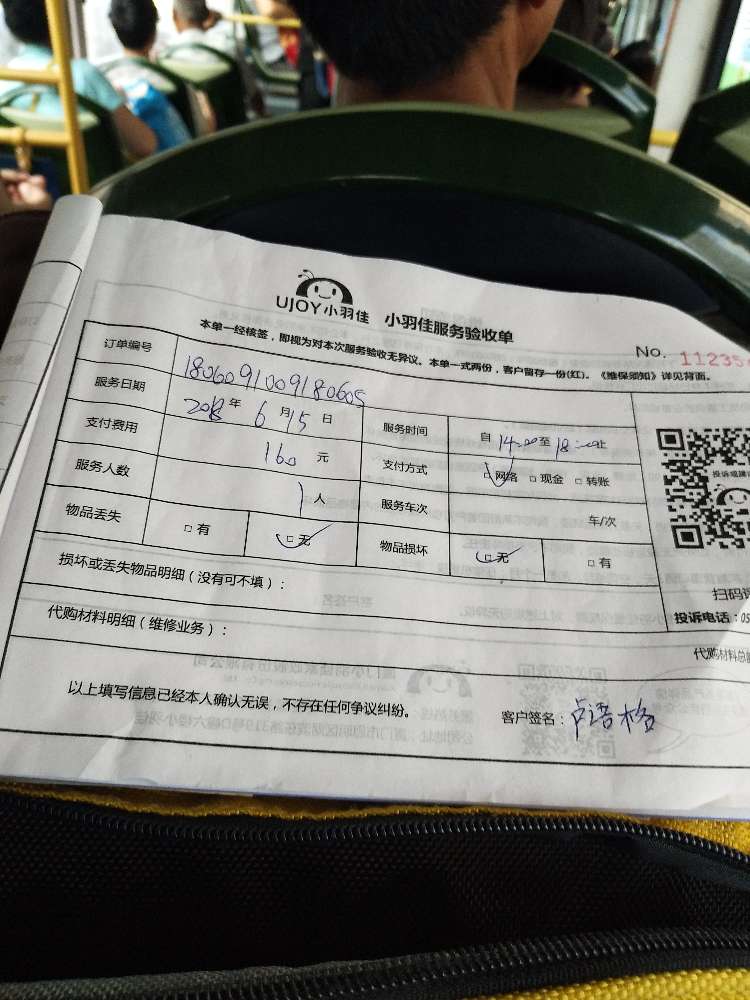 UJOY小羽佳 小羽佳服务验收单
No. 11235
本单一经核签，即视为对本次服务验收无异议。本单一式两份，客户留存一份(红)。《维保须知》详见背面。
订单编号 1806091009180605
服务日期 2018年6月15日 服务时间 自14:00至18:00止
支付费用 160元 支付方式 □网络 □现金 □转账
服务人数 1人 服务车次 车/次
物品丢失 □有 □无 物品损坏 □无 □有
投诉或建议
扫码评
投诉电话：05
损坏或丢失物品明细（没有可不填）：
代购材料明细（维修业务）：
代购材料总
以上填写信息已经本人确认无误，不存在任何争议纠纷。
客户签名：卢语格